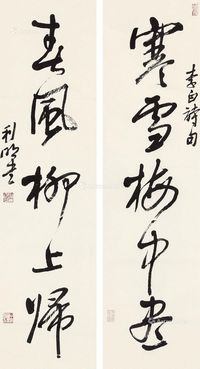 寒雪梅中尽
李白詩句
春風柳上歸
利明书